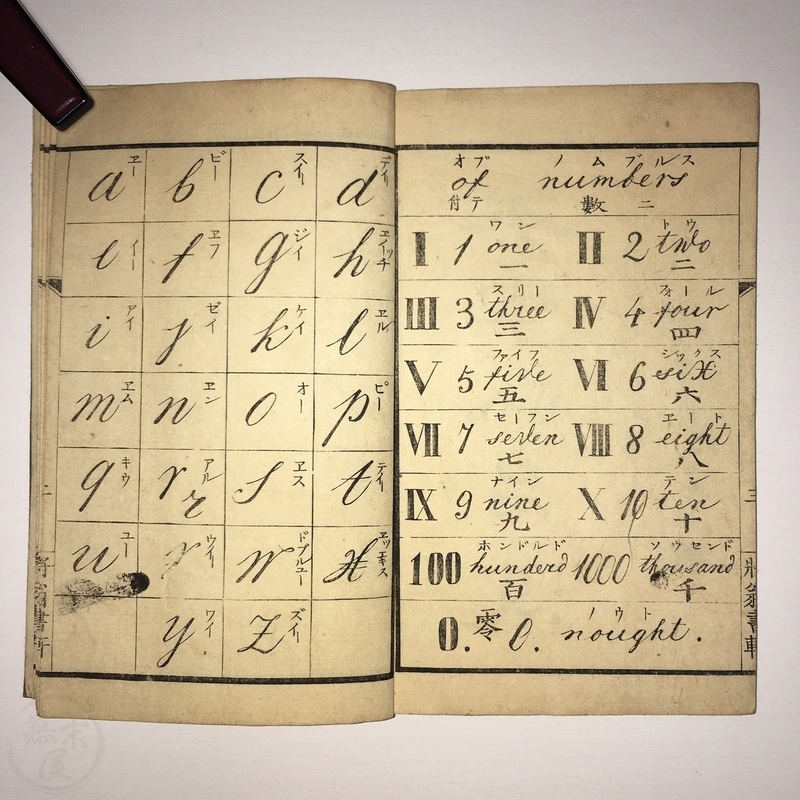 エー ビー スイー デイ
a b c d
イー ヱフ ジイ ヱイッチ
e f g h
アイ ゼイ ケイ ヱル
i j k l
ヱム ヱン オー ピー
m n o p
キウ アル ヱス テイ
q r s t
ユー ウイ ドブルユー ヱッキス
u v w x
ワイ ズイー
y z
オブ ノムブルス
of numbers
付テ 數ニ
ワン トウ
I 1 one II 2 two
一 二
スリー フォール
III 3 three IV 4 four
三 四
ファイフ シックス
V 5 five VI 6 six
五 六
セーフン ヱート
VII 7 seven VIII 8 eight
七 八
ナイン テン
IX 9 nine X 10 ten
九 十
ホンドルド ソウセンド
100 hunderd 1000 thousand
百 千
ノウト
0. 零 0. nought.
三